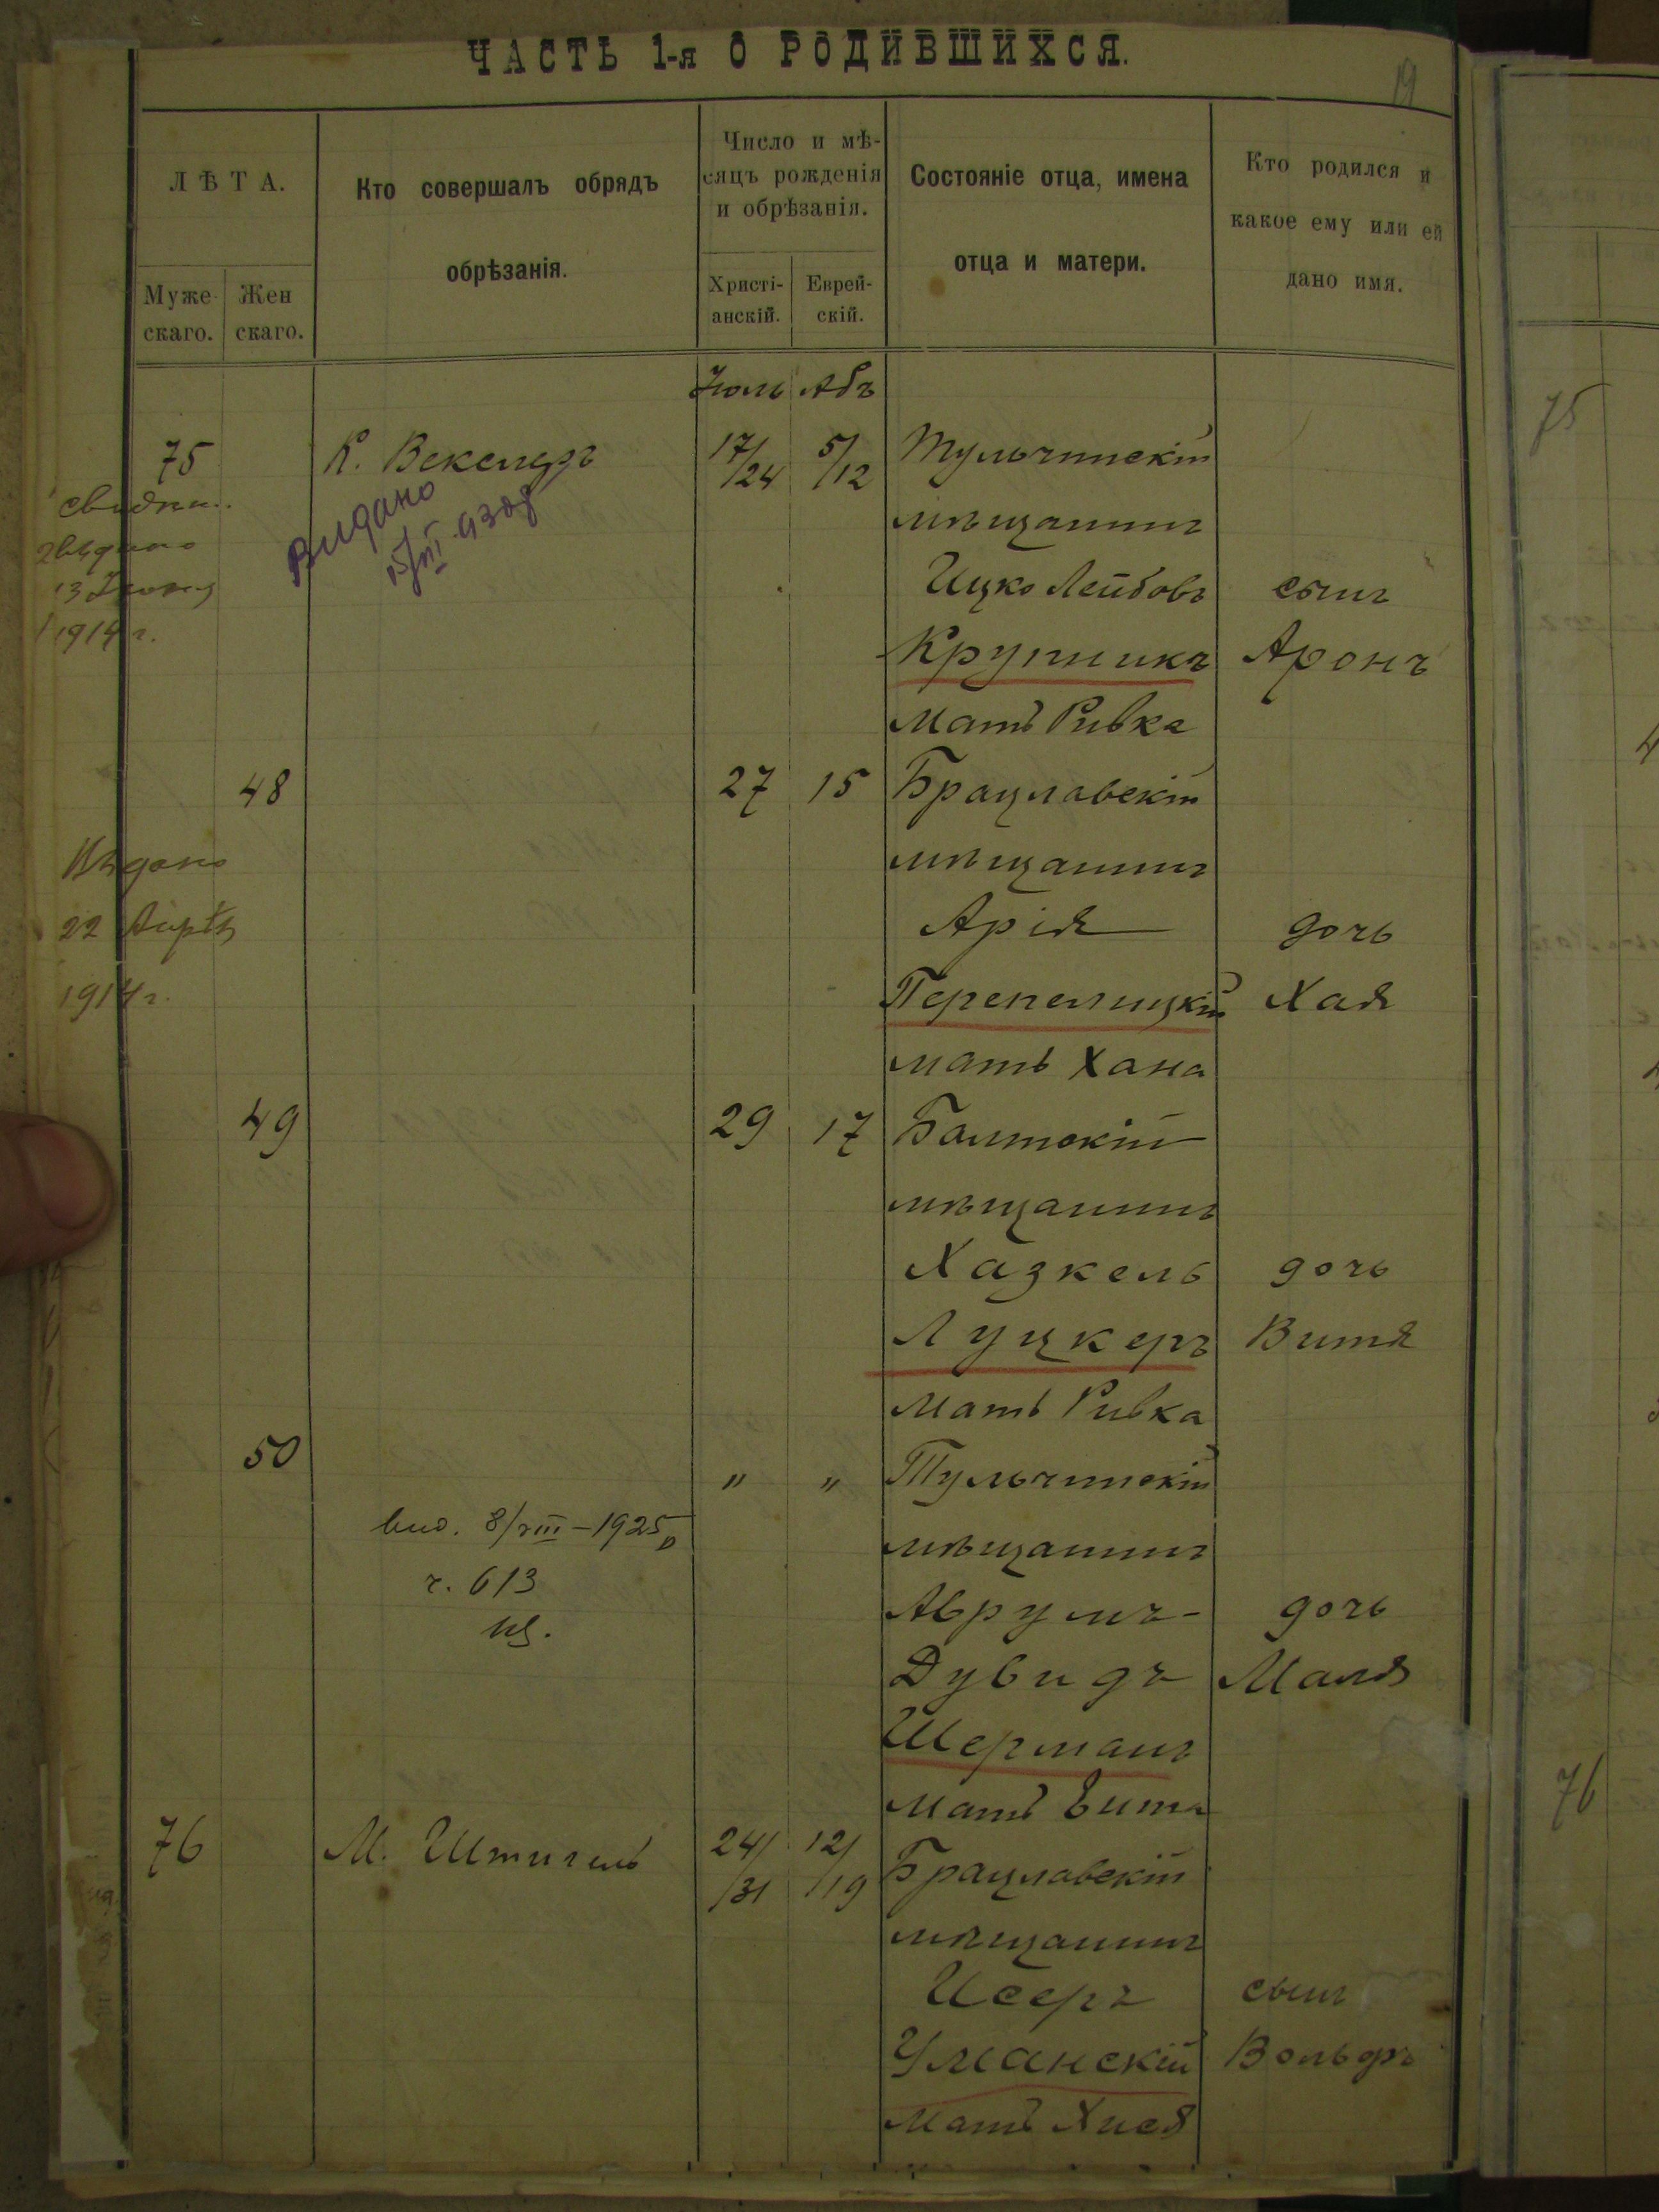 ЧАСТЬ 1-я О РОДИВШИХСЯ.
19
ЛѢТА.
Муже-
скаго.
Жен
скаго.
Кто совершалъ обрядъ
обрѣзанія.
Число и мѣ-
сяцъ рожденія
и обрѣзанія.
Христі-
анскій.
Еврей-
скій.
Состояніе отца, имена
отца и матери.
Кто родился и
какое ему или ей
дано имя.
Іюль Абъ
75 К. Векслеръ 17/24 5/12 Тульчинскій
мѣщанинъ
Ицко Лейбовъ сынъ
Крупникъ Аронъ
мать Ривка
выдано
13
1914 г.
Видано
15/VII
48 27 15 Брацлавскій
мѣщанинъ
Арія дочь
Перепелицкій Хая
мать Хана
Выдано
22 Апрѣл
1914 г.
49 29 17 Балтскій
мѣщанинъ
Хазкель дочь
Луцкеръ Витя
мать Ривка
50 " " Тульчинскій
мѣщанинъ
Аврумъ- дочь
Дувидъ Маля
Шерманъ
мать
вид. 8/VIII-1925 р
ч. 613
76 М. Штигель 24/31 12/19 Брацлавскій
мѣщанинъ
Исеръ сынъ
Уманскій Вольфъ
мать Хися
75
76